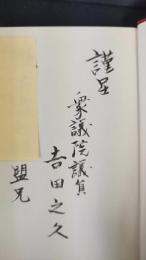 謹呈
衆議院議員
吉田之久
盟兄